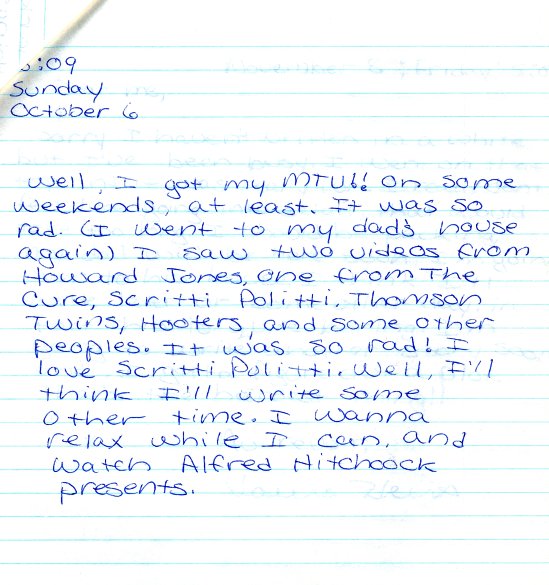 :09
Sunday
October 6
Well, I got my MTV!! On some
weekends, at least. It was so
rad. (I went to my dad's house
again) I saw two videos from
Howard Jones, one from The
Cure, Scritti Politti, Thomson
Twins, Hooters, and some other
peoples. It was so rad! I
love Scritti Politti. Well, I'll
think I'll write some
other time. I wanna
relax while I can, and
watch Alfred Hitchcock
presents.